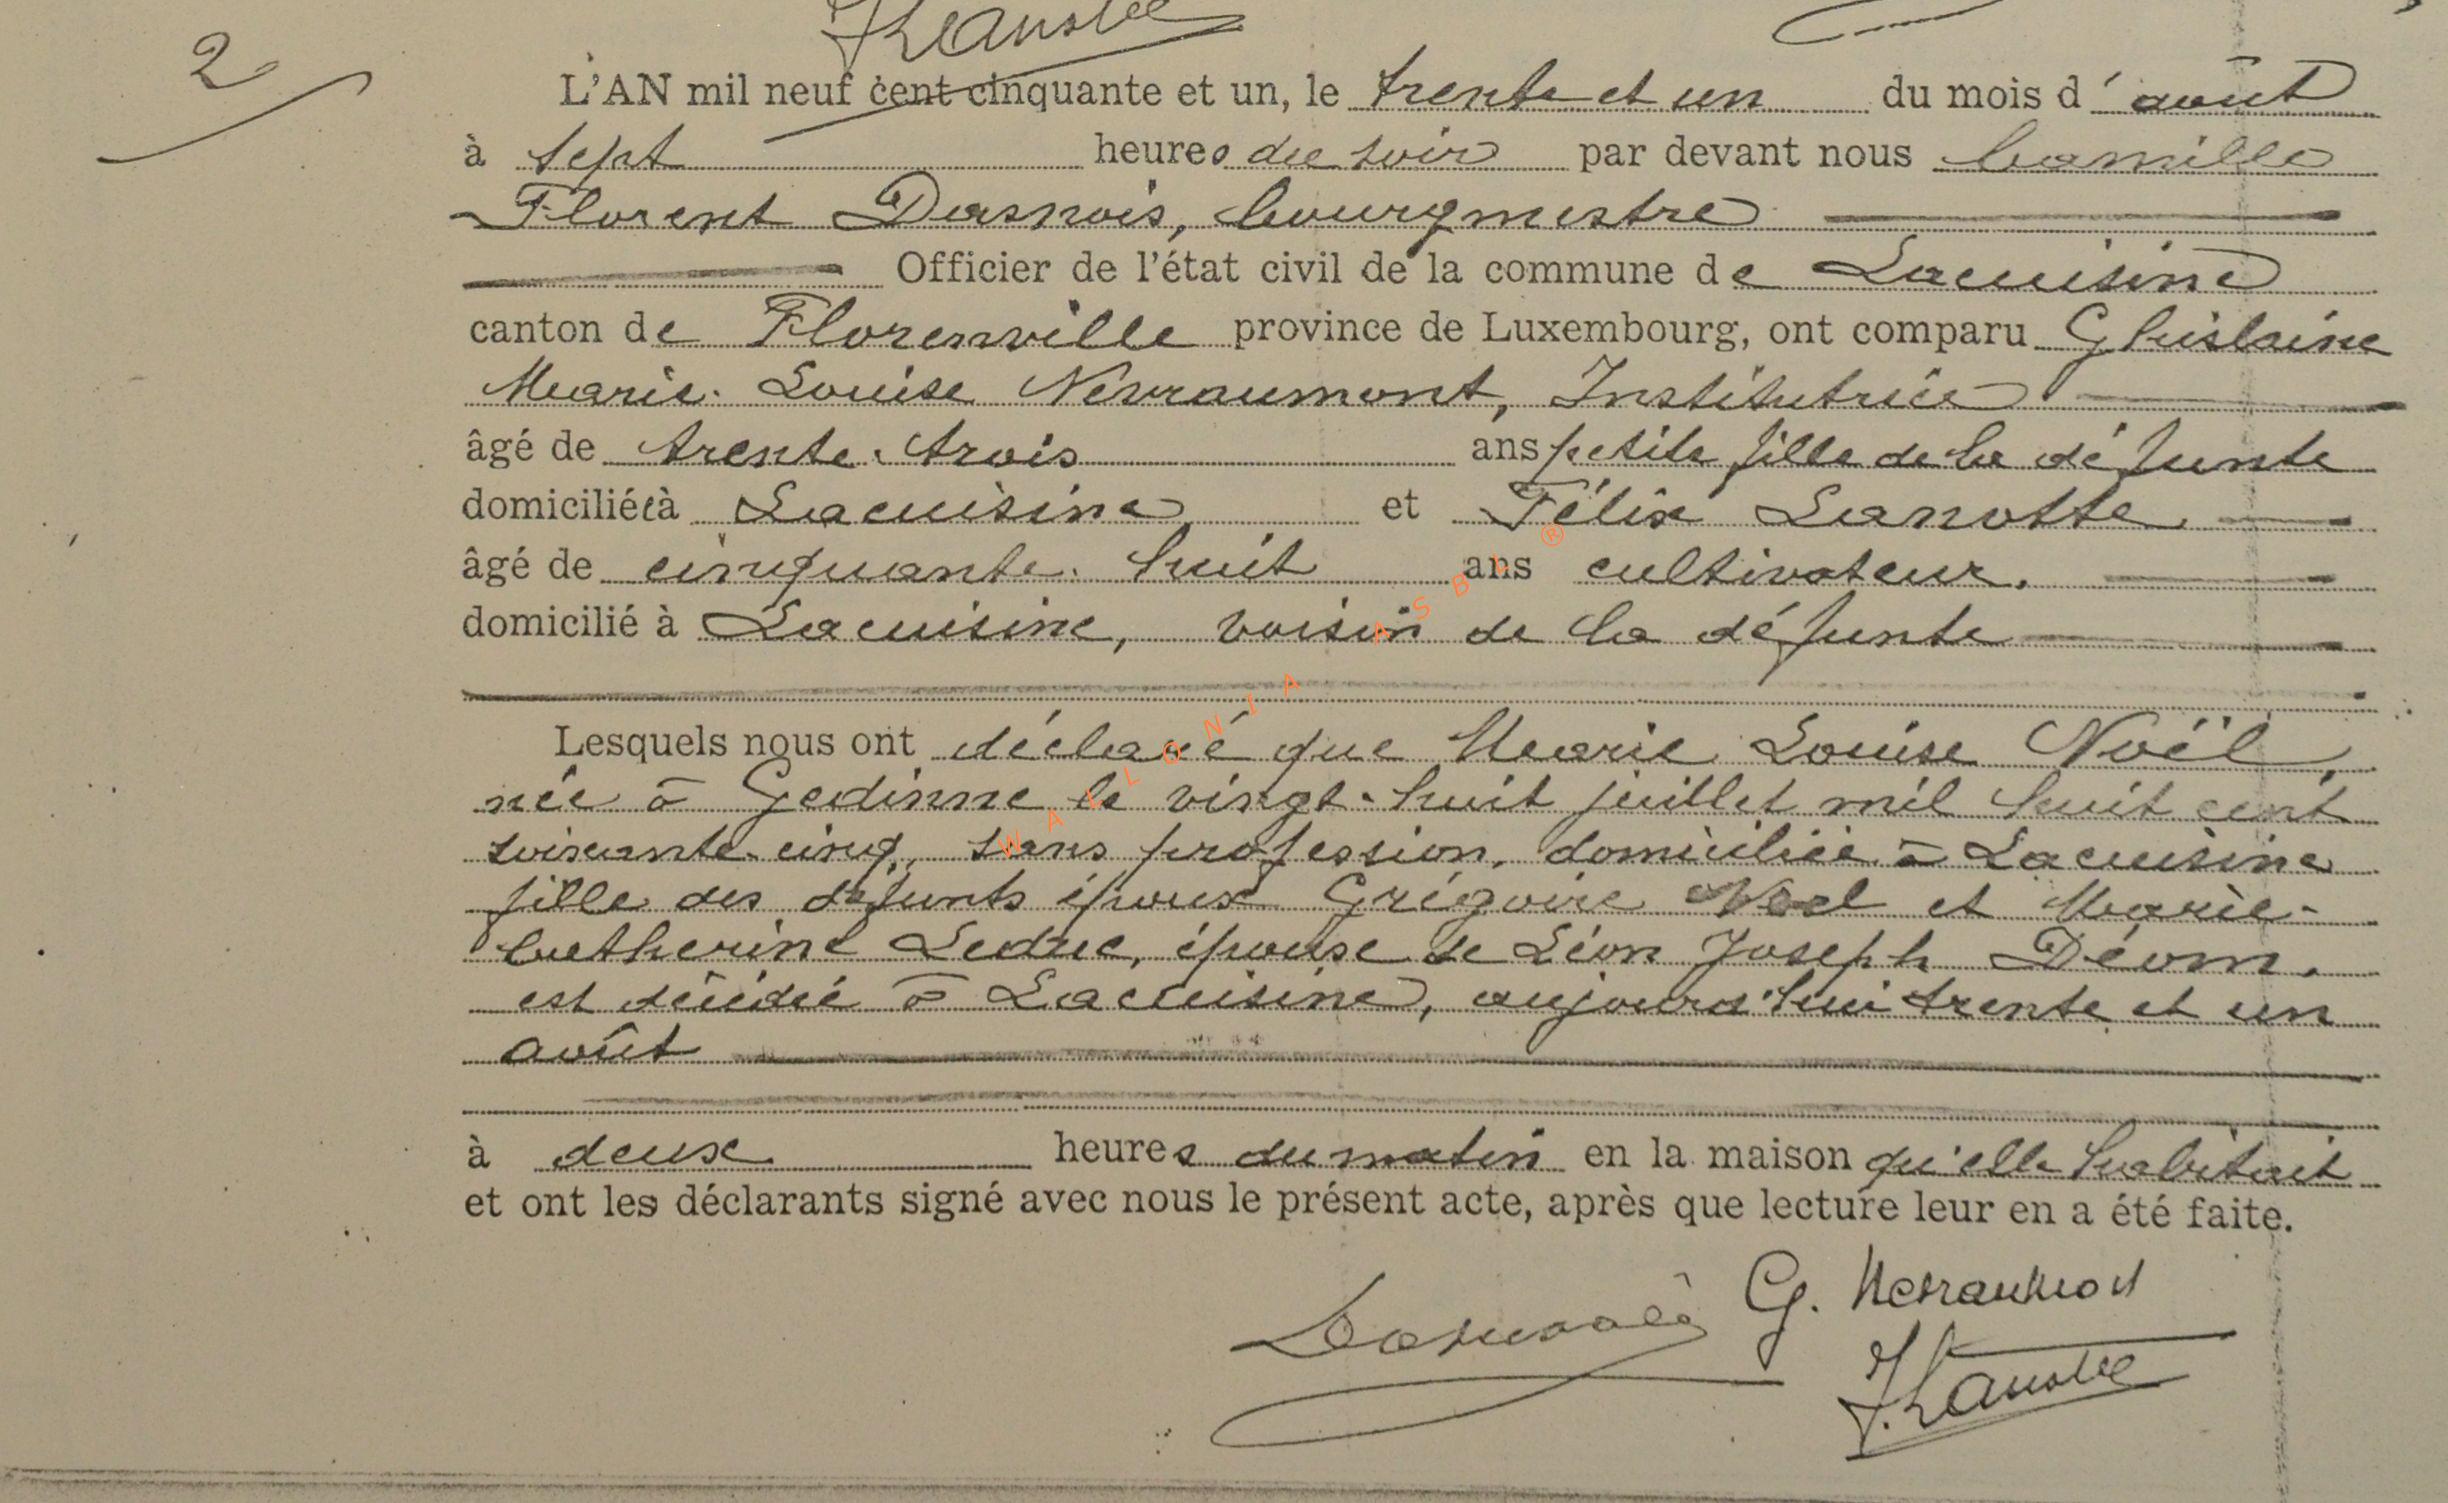 2
L'AN mil neuf cent cinquante et un, le trente et un du mois d'août
à sept heures du soir par devant nous Camille
Florent Dasnois, bourgmestre
Officier de l'état civil de la commune de Lacuisine
canton de Florenville province de Luxembourg, ont comparu Ghislaine
Marie-Louise Nevraumont, Institutrice
âgé de trente-trois ans petite fille de la défunte
domiciliée à Lacuisine et Félix Lanotte
âgé de cinquante-huit ans cultivateur.
domicilié à Lacuisine, voisin de la défunte
Lesquels nous ont déclaré que Marie Louise Noël,
née à Gedinne le vingt-huit juillet mil huit cent
soixante-cinq, sans profession, domiciliée à Lacuisine
fille des défunts époux Grégoire Noel et Marie-
Catherine Leduc, épouse de Léon Joseph Déom,
est décédée à Lacuisine, aujourd'hui trente et un
août
à deux heures du matin en la maison qu'elle habitait
et ont les déclarants signé avec nous le présent acte, après que lecture leur en a été faite.
Dasnois G. Nevraumont
F. Lanotte
WALLONIA ASBL ®